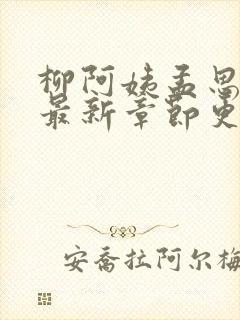 柳阿姨孟思
最新章节更
安乔拉阿尔梅